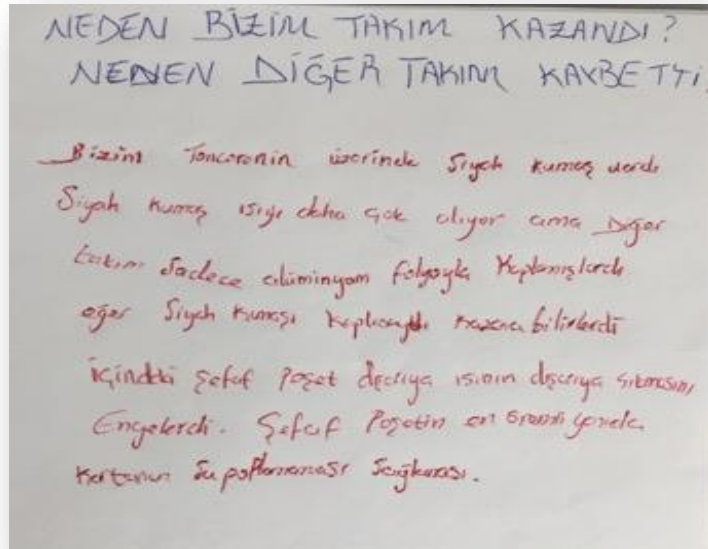 NEDEN BİZİM TAKIM KAZANDI?
NEDEN DİĞER TAKIM KAYBETTİ
Bizim Tencerenin üzerinde Siyah kumaş vardı
Siyah kumaş ışığı daha çok alıyor ama Diğer
takım Sadece alüminyam folyoyla Kaplamışlardı
eğer Siyah Kumaşı kazana bilirlerdi
içindeki Şefaf Poşet ısının dışarıya
Engelerdi. Şefaf Poşetin en
Sağlaması.